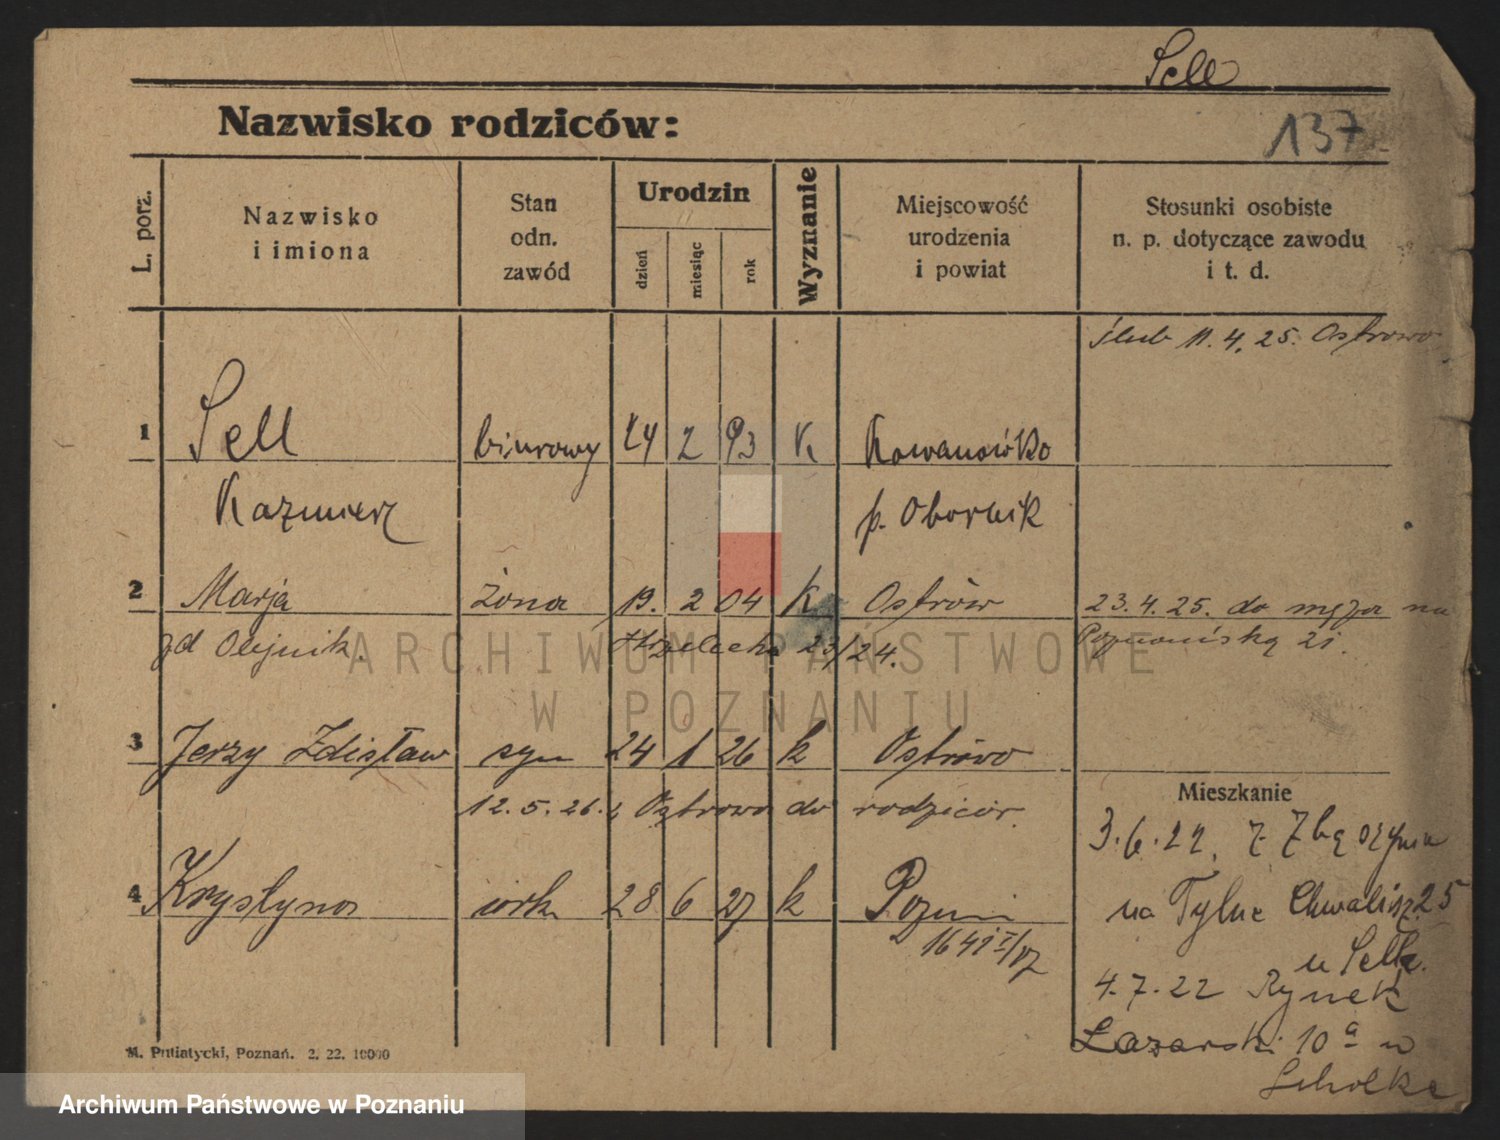 Sell
Nazwisko rodziców:
137
L. porz.
Nazwisko
i imiona
Stan
odn.
zawód
Urodzin
dzień
miesiąc
rok
Wyznanie
Miejscowość
urodzenia
i powiat
Stosunki osobiste
n. p. dotyczące zawodu
i t. d.
ślub 11. 4. 25. Ostrowo
1 Sell biurowy 24 2 93 K Kowanówko
Kazmierz p. Obornik
2 Marja żona 19. 2 04 K Ostrów 23. 4. 25. do męża na
zd Olejnik. Strzelecka 23/24. Poznańską 21.
ARCHIWUM PAŃSTWOWE
W POZNANIU
3 Jerzy Zdisław syn 24 1 26 k Ostrowo
12. 5. 26. z Ostrowa do rodziców.
Mieszkanie
3. 6. 22. z Zbąszynia
4 Krystyna córk 28 6 27 k Pozna
na Tylne Chwalisz. 25
u Sella.
4. 7. 22 Rynek
Łazarski 10a u
M. Putiatycki, Poznań. 2. 22. 10000
Archiwum Państwowe w Poznaniu